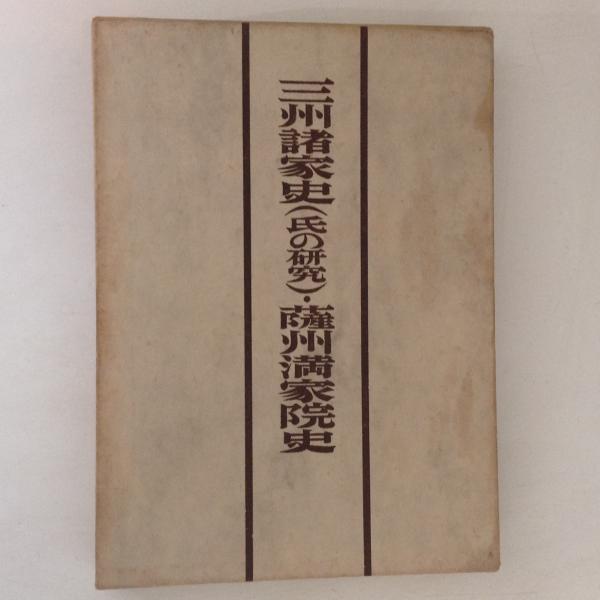 三州諸家史(氏の研究)・薩州満家院史